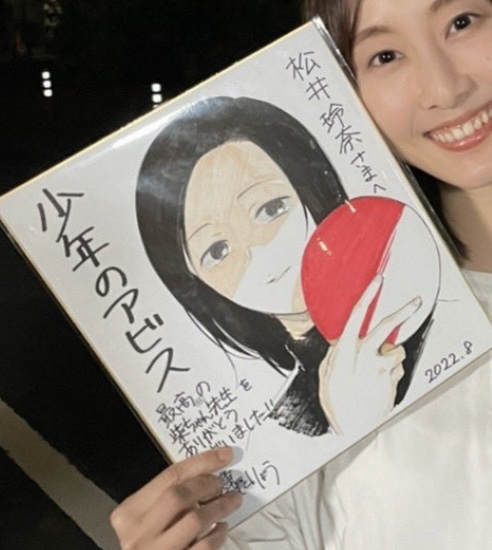 松井玲奈さまへ
少年のアビス
最高の
柴ちゃん先生を
ありがとう
いました!!
りょう
2022.8